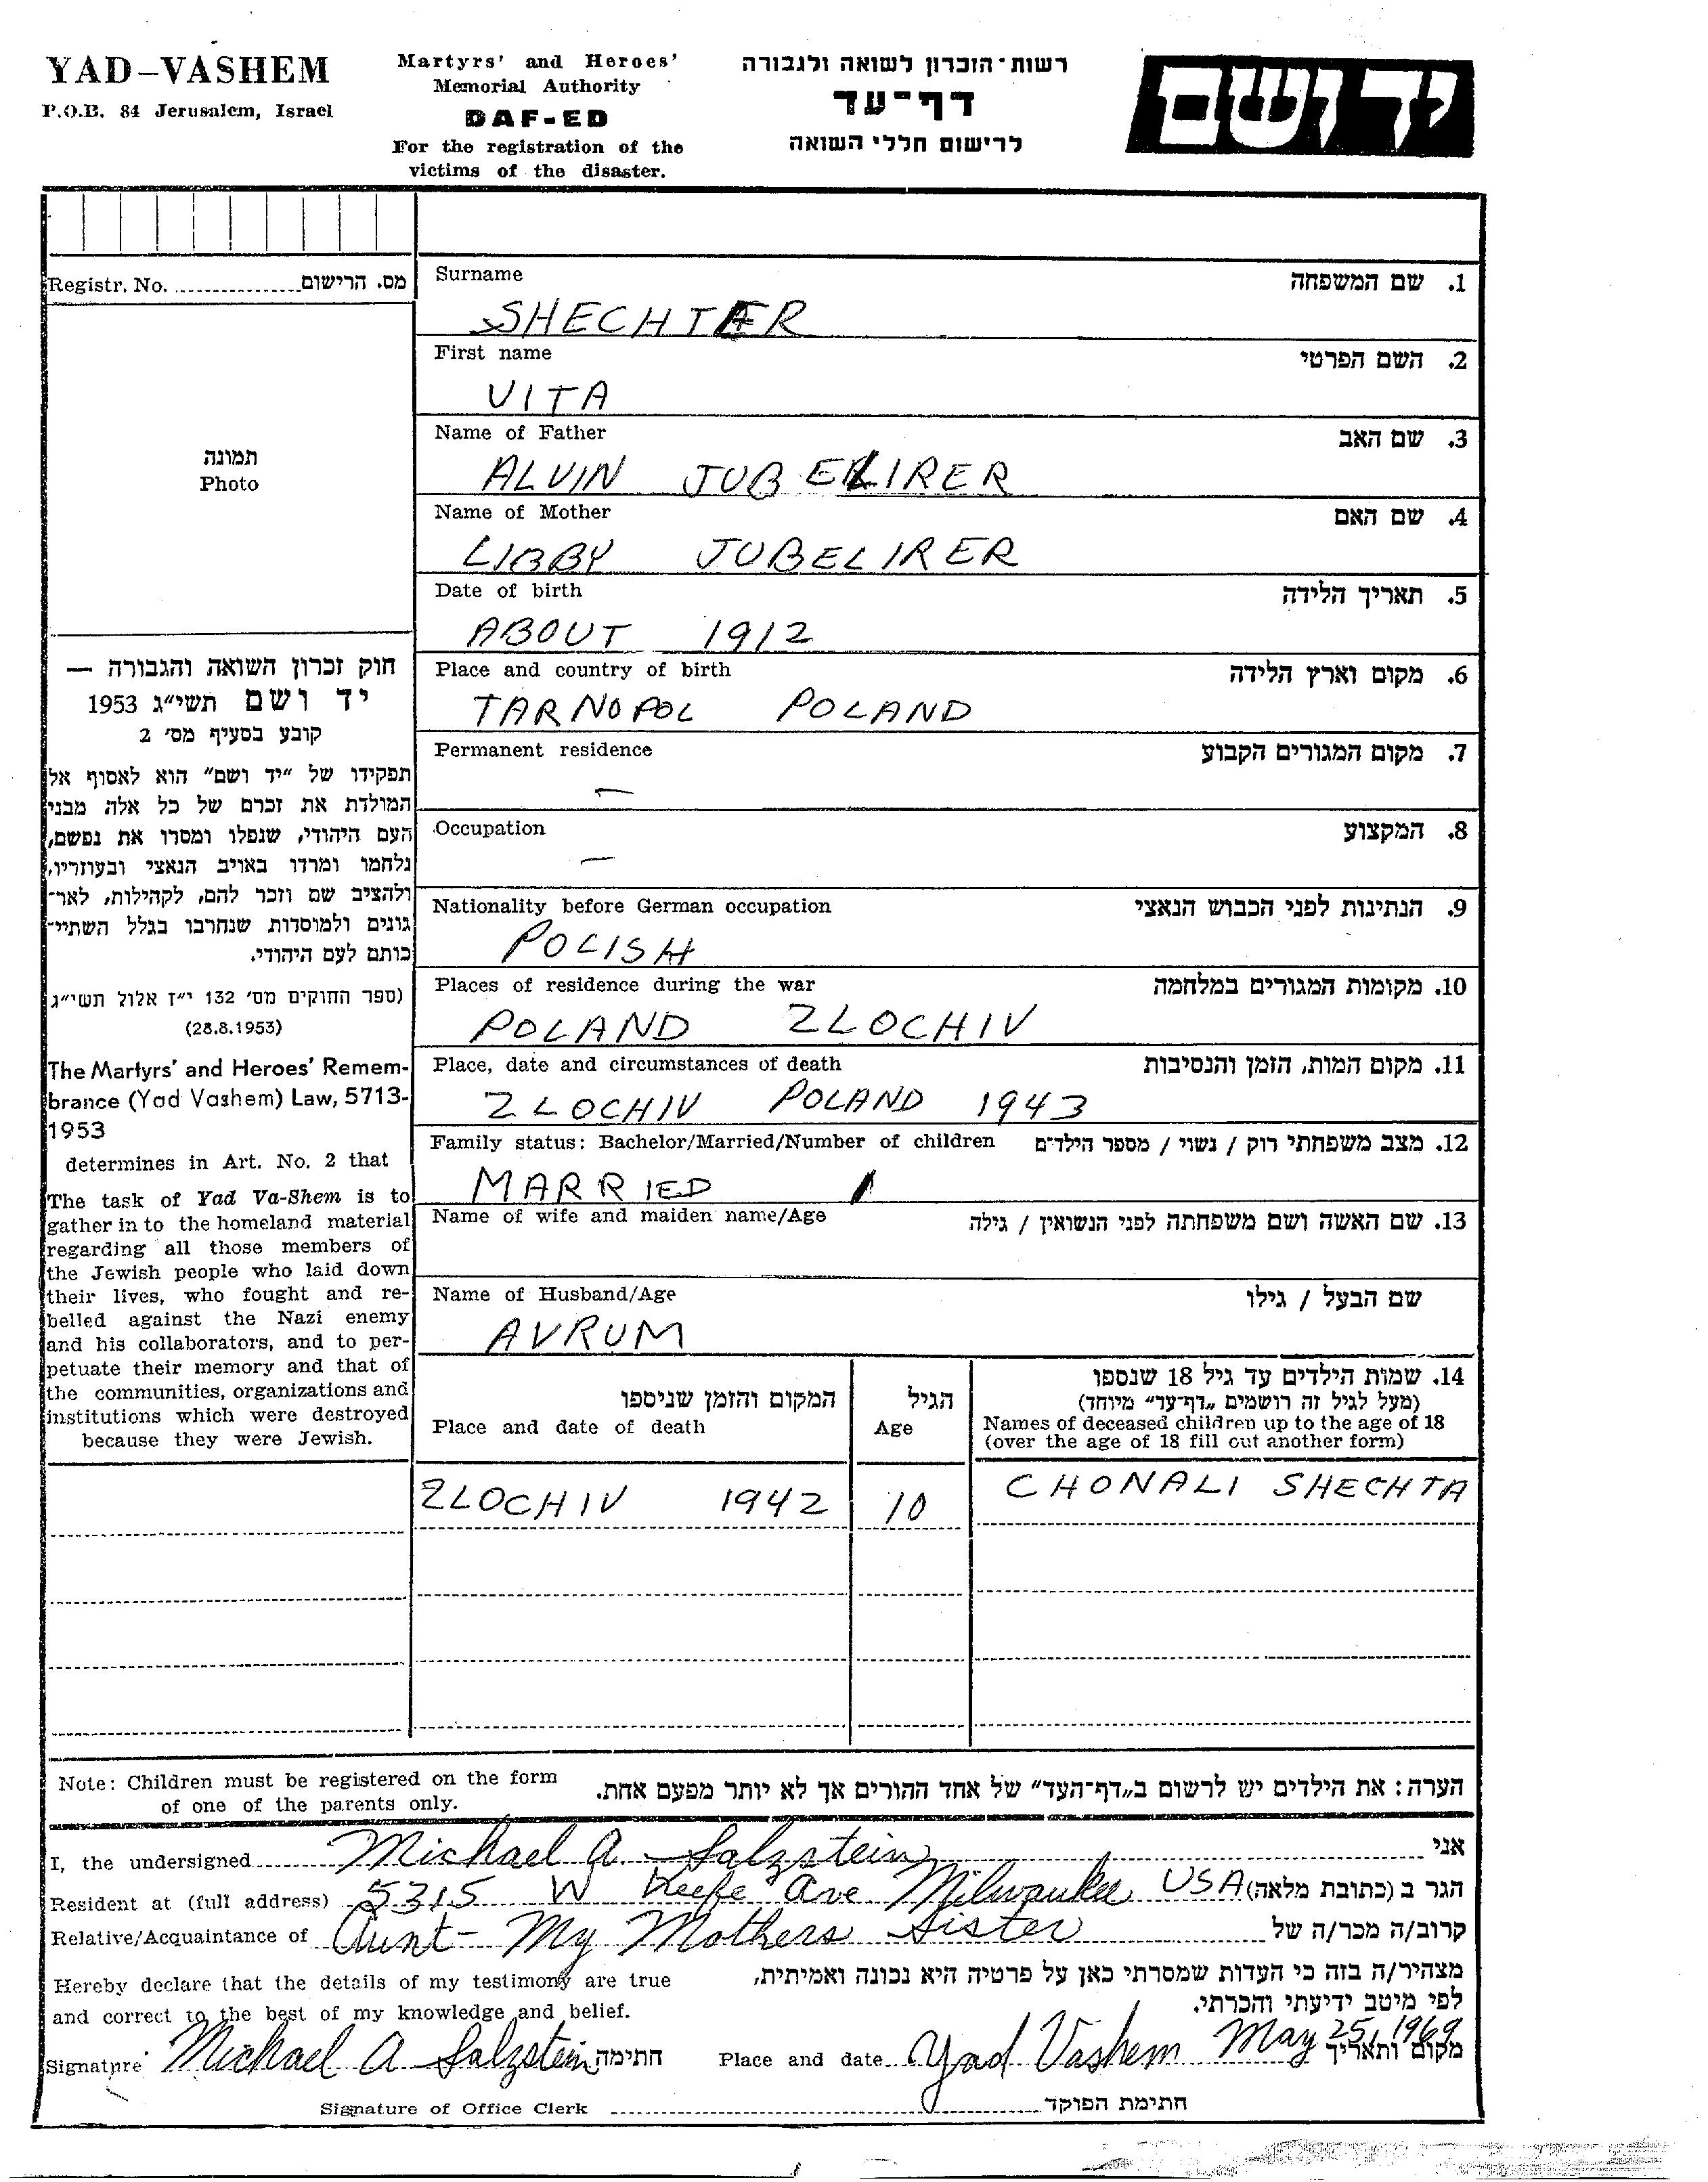 YAD-VASHEM
P.O.B. 84 Jerusalem, Israel
Martyrs' and Heroes'
Memorial Authority
DAF-ED
For the registration of the
victims of the disaster.
רשות-הזכרון לשואה ולגבורה
דף-עד
לרישום חללי השואה
יד ושם
Registr. No. מס. הרישום
תמונה
Photo
חוק זכרון השואה והגבורה —
יד ושם תשי"ג 1953
קובע בסעיף מס' 2
תפקידו של "יד ושם" הוא לאסוף אל
המולדת את זכרם של כל אלה מבני
העם היהודי, שנפלו ומסרו את נפשם,
נלחמו ומרדו באויב הנאצי ובעוזריו,
ולהציב שם וזכר להם, לקהילות, לאר-
גונים ולמוסדות שנחרבו בגלל השתיי-
כותם לעם היהודי.
(ספר החוקים מס' 132 י"ז אלול תשי"ג
(28.8.1953)
The Martyrs' and Heroes' Remem-
brance (Yad Vashem) Law, 5713-
1953
determines in Art. No. 2 that
The task of Yad Va-Shem is to
gather in to the homeland material
regarding all those members of
the Jewish people who laid down
their lives, who fought and re-
belled against the Nazi enemy
and his collaborators, and to per-
petuate their memory and that of
the communities, organizations and
institutions which were destroyed
because they were Jewish.
Surname 1. שם המשפחה
SHECHTER
First name 2. השם הפרטי
VITA
Name of Father 3. שם האב
ALVIN JUBELIRER
Name of Mother 4. שם האם
LIBBY JUBELIRER
Date of birth 5. תאריך הלידה
ABOUT 1912
Place and country of birth 6. מקום וארץ הלידה
TARNOPOL POLAND
Permanent residence 7. מקום המגורים הקבוע
—
Occupation 8. המקצוע
—
Nationality before German occupation 9. הנתינות לפני הכבוש הנאצי
POLISH
Places of residence during the war 10. מקומות המגורים במלחמה
POLAND ZLOCHIV
Place, date and circumstances of death 11. מקום המות, הזמן והנסיבות
ZLOCHIV POLAND 1943
Family status: Bachelor/Married/Number of children 12. מצב משפחתי רוק / נשוי / מספר הילדים
MARRIED 1
Name of wife and maiden name/Age 13. שם האשה ושם משפחתה לפני הנשואין / גילה
Name of Husband/Age שם הבעל / גילו
AVRUM
המקום והזמן שניספו
Place and date of death
הגיל
Age
14. שמות הילדים עד גיל 18 שנספו
(מעל לגיל זה רושמים "דף-עד" מיוחד)
Names of deceased children up to the age of 18
(over the age of 18 fill out another form)
ZLOCHIV 1942 10 CHONALI SHECHTA
Note: Children must be registered on the form
of one of the parents only.
הערה: את הילדים יש לרשום ב"דף-העד" של אחד ההורים אך לא יותר מפעם אחת.
I, the undersigned Michael A. Salzstein אני
Resident at (full address) 5315 W Keefe Ave Milwaukee USA הגר ב (כתובת מלאה)
Relative/Acquaintance of Aunt - My Mothers Sister קרוב/ה מכר/ה של
Hereby declare that the details of my testimony are true
and correct to the best of my knowledge and belief.
מצהיר/ה בזה כי העדות שמסרתי כאן על פרטיה היא נכונה ואמיתית,
לפי מיטב ידיעתי והכרתי.
Signature Michael A Salzstein חתימה Place and date Yad Vashem May 25, 1969 מקום ותאריך
Signature of Office Clerk חתימת הפוקד